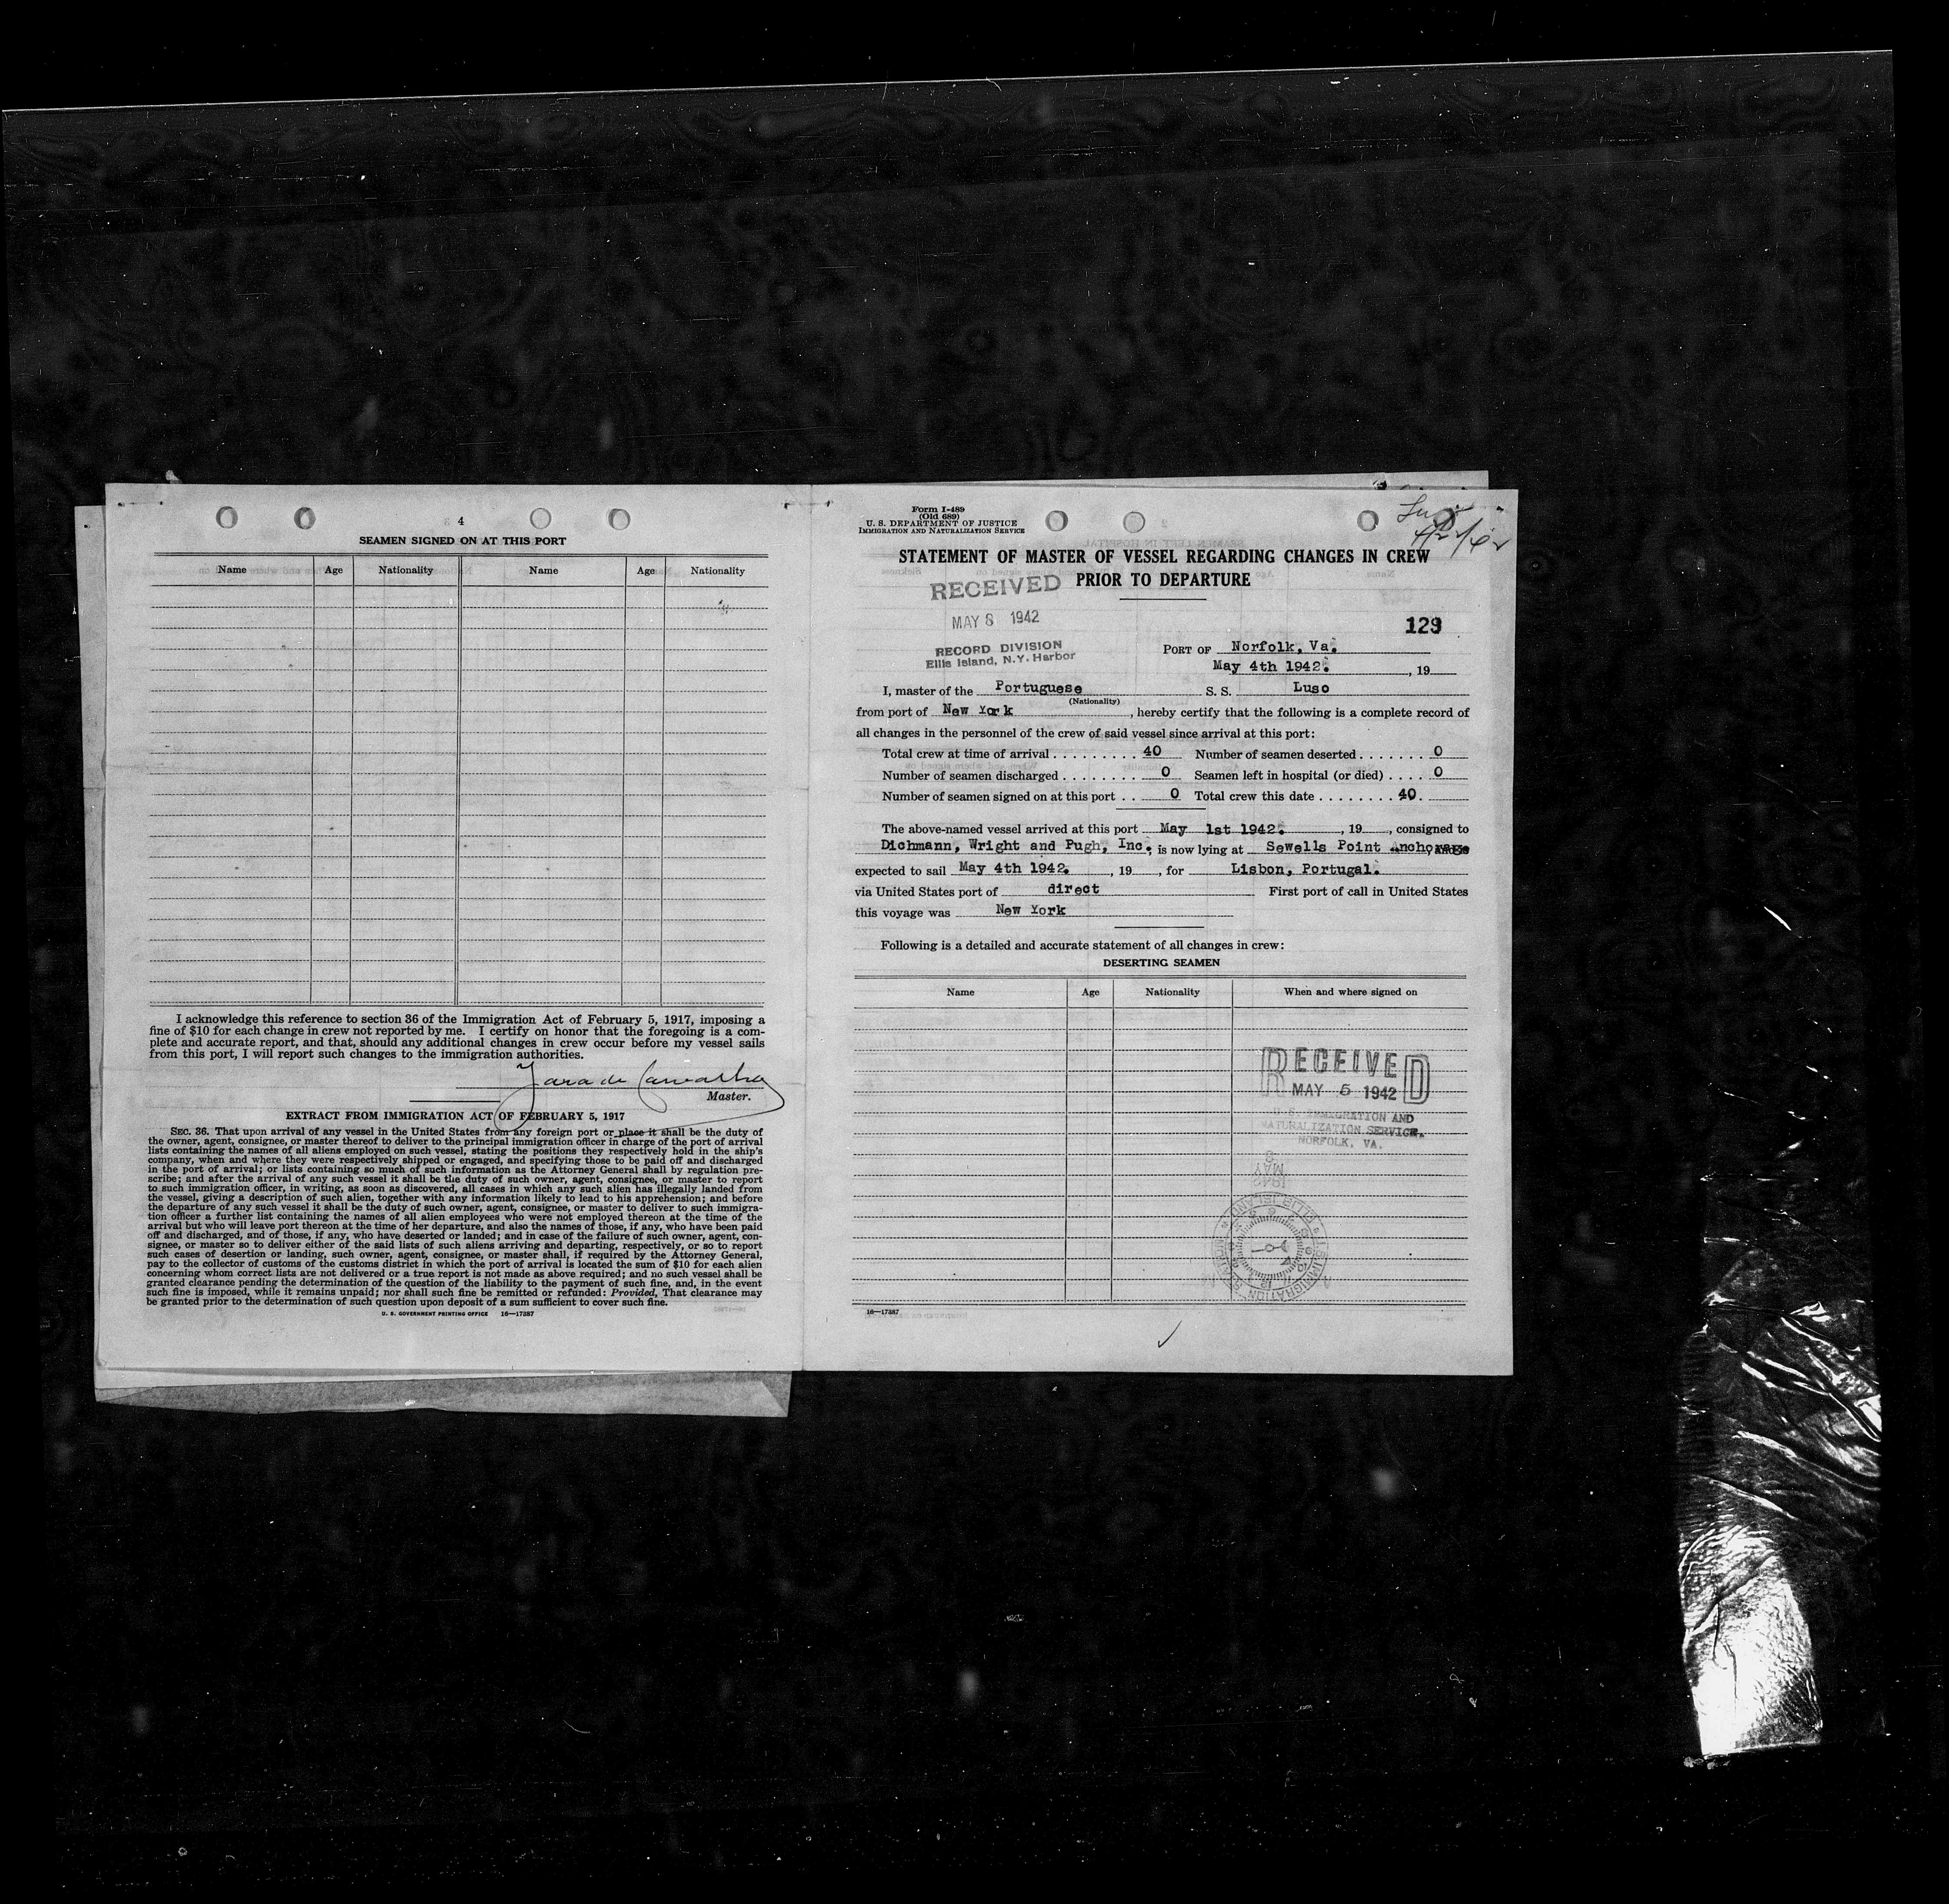 4
SEAMEN SIGNED ON AT THIS PORT
Name Age Nationality Name Age Nationality
I acknowledge this reference to section 36 of the Immigration Act of February 5, 1917, imposing a
fine of $10 for each change in crew not reported by me. I certify on honor that the foregoing is a com-
plete and accurate report, and that, should any additional changes in crew occur before my vessel sails
from this port, I will report such changes to the immigration authorities.
Master.
EXTRACT FROM IMMIGRATION ACT OF FEBRUARY 5, 1917
SEC. 36. That upon arrival of any vessel in the United States from any foreign port or place it shall be the duty of
the owner, agent, consignee, or master thereof to deliver to the principal immigration officer in charge of the port of arrival
lists containing the names of all aliens employed on such vessel, stating the positions they respectively hold in the ship's
company, when and where they were respectively shipped or engaged, and specifying those to be paid off and discharged
in the port of arrival; or lists containing so much of such information as the Attorney General shall by regulation pre-
scribe; and after the arrival of any such vessel it shall be the duty of such owner, agent, consignee, or master to report
to such immigration officer, in writing, as soon as discovered, all cases in which any such alien has illegally landed from
the vessel, giving a description of such alien, together with any information likely to lead to his apprehension; and before
the departure of any such vessel it shall be the duty of such owner, agent, consignee, or master to deliver to such immigra-
tion officer a further list containing the names of all alien employees who were not employed thereon at the time of the
arrival but who will leave port thereon at the time of her departure, and also the names of those, if any, who have been paid
off and discharged, and of those, if any, who have deserted or landed; and in case of the failure of such owner, agent, con-
signee, or master so to deliver either of the said lists of such aliens arriving and departing, respectively, or so to report
such cases of desertion or landing, such owner, agent, consignee, or master shall, if required by the Attorney General,
pay to the collector of customs of the customs district in which the port of arrival is located the sum of $10 for each alien
concerning whom correct lists are not delivered or a true report is not made as above required; and no such vessel shall be
granted clearance pending the determination of the question of the liability to the payment of such fine, and, in the event
such fine is imposed, while it remains unpaid; nor shall such fine be remitted or refunded: Provided, That clearance may
be granted prior to the determination of such question upon deposit of a sum sufficient to cover such fine.
U. S. GOVERNMENT PRINTING OFFICE 16—17387
Form I-489
(Old 689)
U. S. DEPARTMENT OF JUSTICE
IMMIGRATION AND NATURALIZATION SERVICE
STATEMENT OF MASTER OF VESSEL REGARDING CHANGES IN CREW
PRIOR TO DEPARTURE
RECEIVED
MAY 8 1942
RECORD DIVISION
Ellis Island, N.Y. Harbor
129
PORT OF Norfolk, Va.
May 4th 1942. , 19
I, master of the Portuguese S. S. Luso
(Nationality)
from port of New York , hereby certify that the following is a complete record of
all changes in the personnel of the crew of said vessel since arrival at this port:
Total crew at time of arrival . . . . . . . . . 40 Number of seamen deserted . . . . . . . 0
Number of seamen discharged . . . . . . . . 0 Seamen left in hospital (or died) . . . . 0
Number of seamen signed on at this port . . 0 Total crew this date . . . . . . . . 40.
The above-named vessel arrived at this port May 1st 1942. , 19 , consigned to
Dichmann, Wright and Pugh, Inc. is now lying at Sewells Point Anchorage
expected to sail May 4th 1942. , 19 , for Lisbon, Portugal.
via United States port of direct First port of call in United States
this voyage was New York
Following is a detailed and accurate statement of all changes in crew:
DESERTING SEAMEN
Name Age Nationality When and where signed on
RECEIVED
MAY 5 1942
U.S. IMMIGRATION AND
NATURALIZATION SERVICE.
NORFOLK, VA.
16—17387